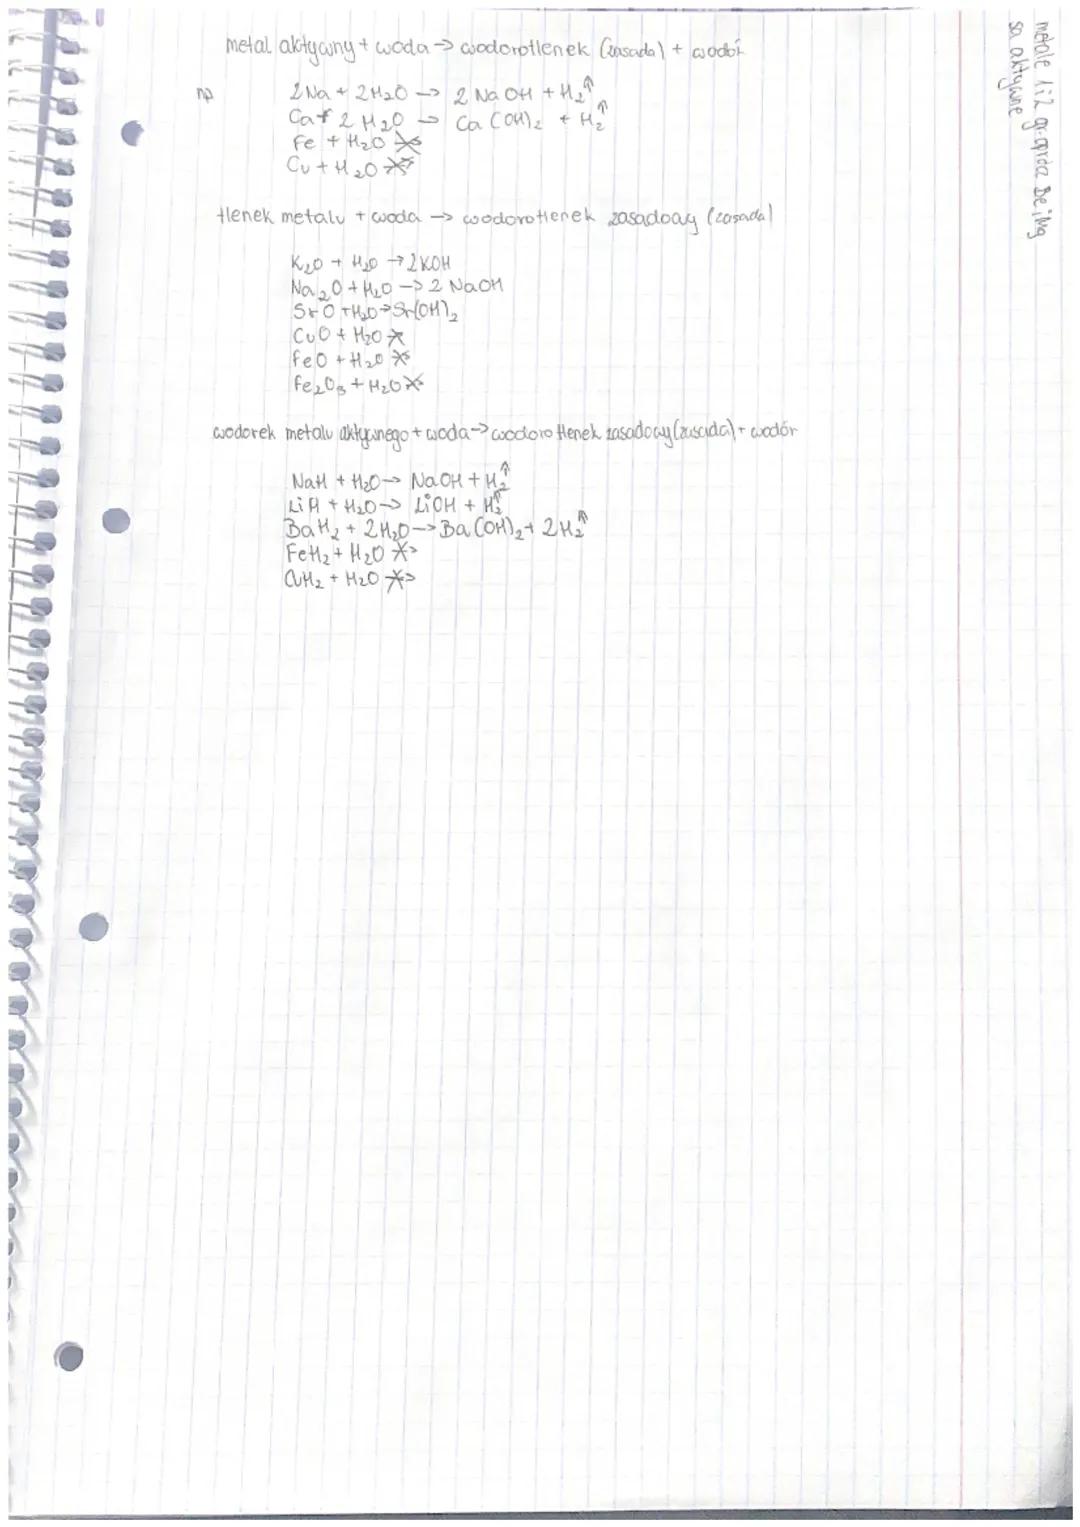 metal aktywny + woda → wodorotlenek (zasada) + wodór
np
2Na + 2H₂O → 2NaOH + H₂↑
Ca + 2H₂O → Ca(OH)₂ + H₂↑
Fe + H₂O ↛
Cu + H₂O ↛
tlenek metalu + woda → wodorotlenek zasadowy (zasada)
K₂O + H₂O → 2KOH
Na₂O + H₂O → 2 NaOH
SrO + H₂O → Sr(OH)₂
CuO + H₂O ↛
FeO + H₂O ↛
Fe₂O₃ + H₂O ↛
wodorek metalu aktywnego + woda → wodorotlenek zasadowy (zasada) + wodór
NaH + H₂O → NaOH + H₂↑
LiH + H₂O → LiOH + H₂↑
BaH₂ + 2H₂O → Ba(OH)₂ + 2H₂↑
FeH₂ + H₂O ↛
CuH₂ + H₂O ↛
metale 1 i 2 gr. oprócz Be i Mg
są aktywne